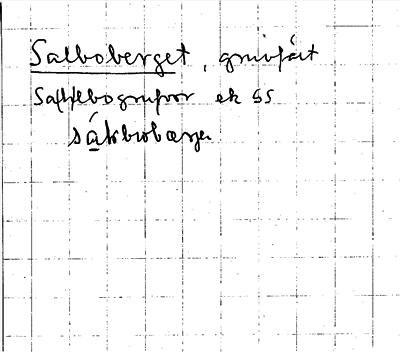 Salboberget, gruvfält
Sahlbogruvor ek 55
sálbobærje